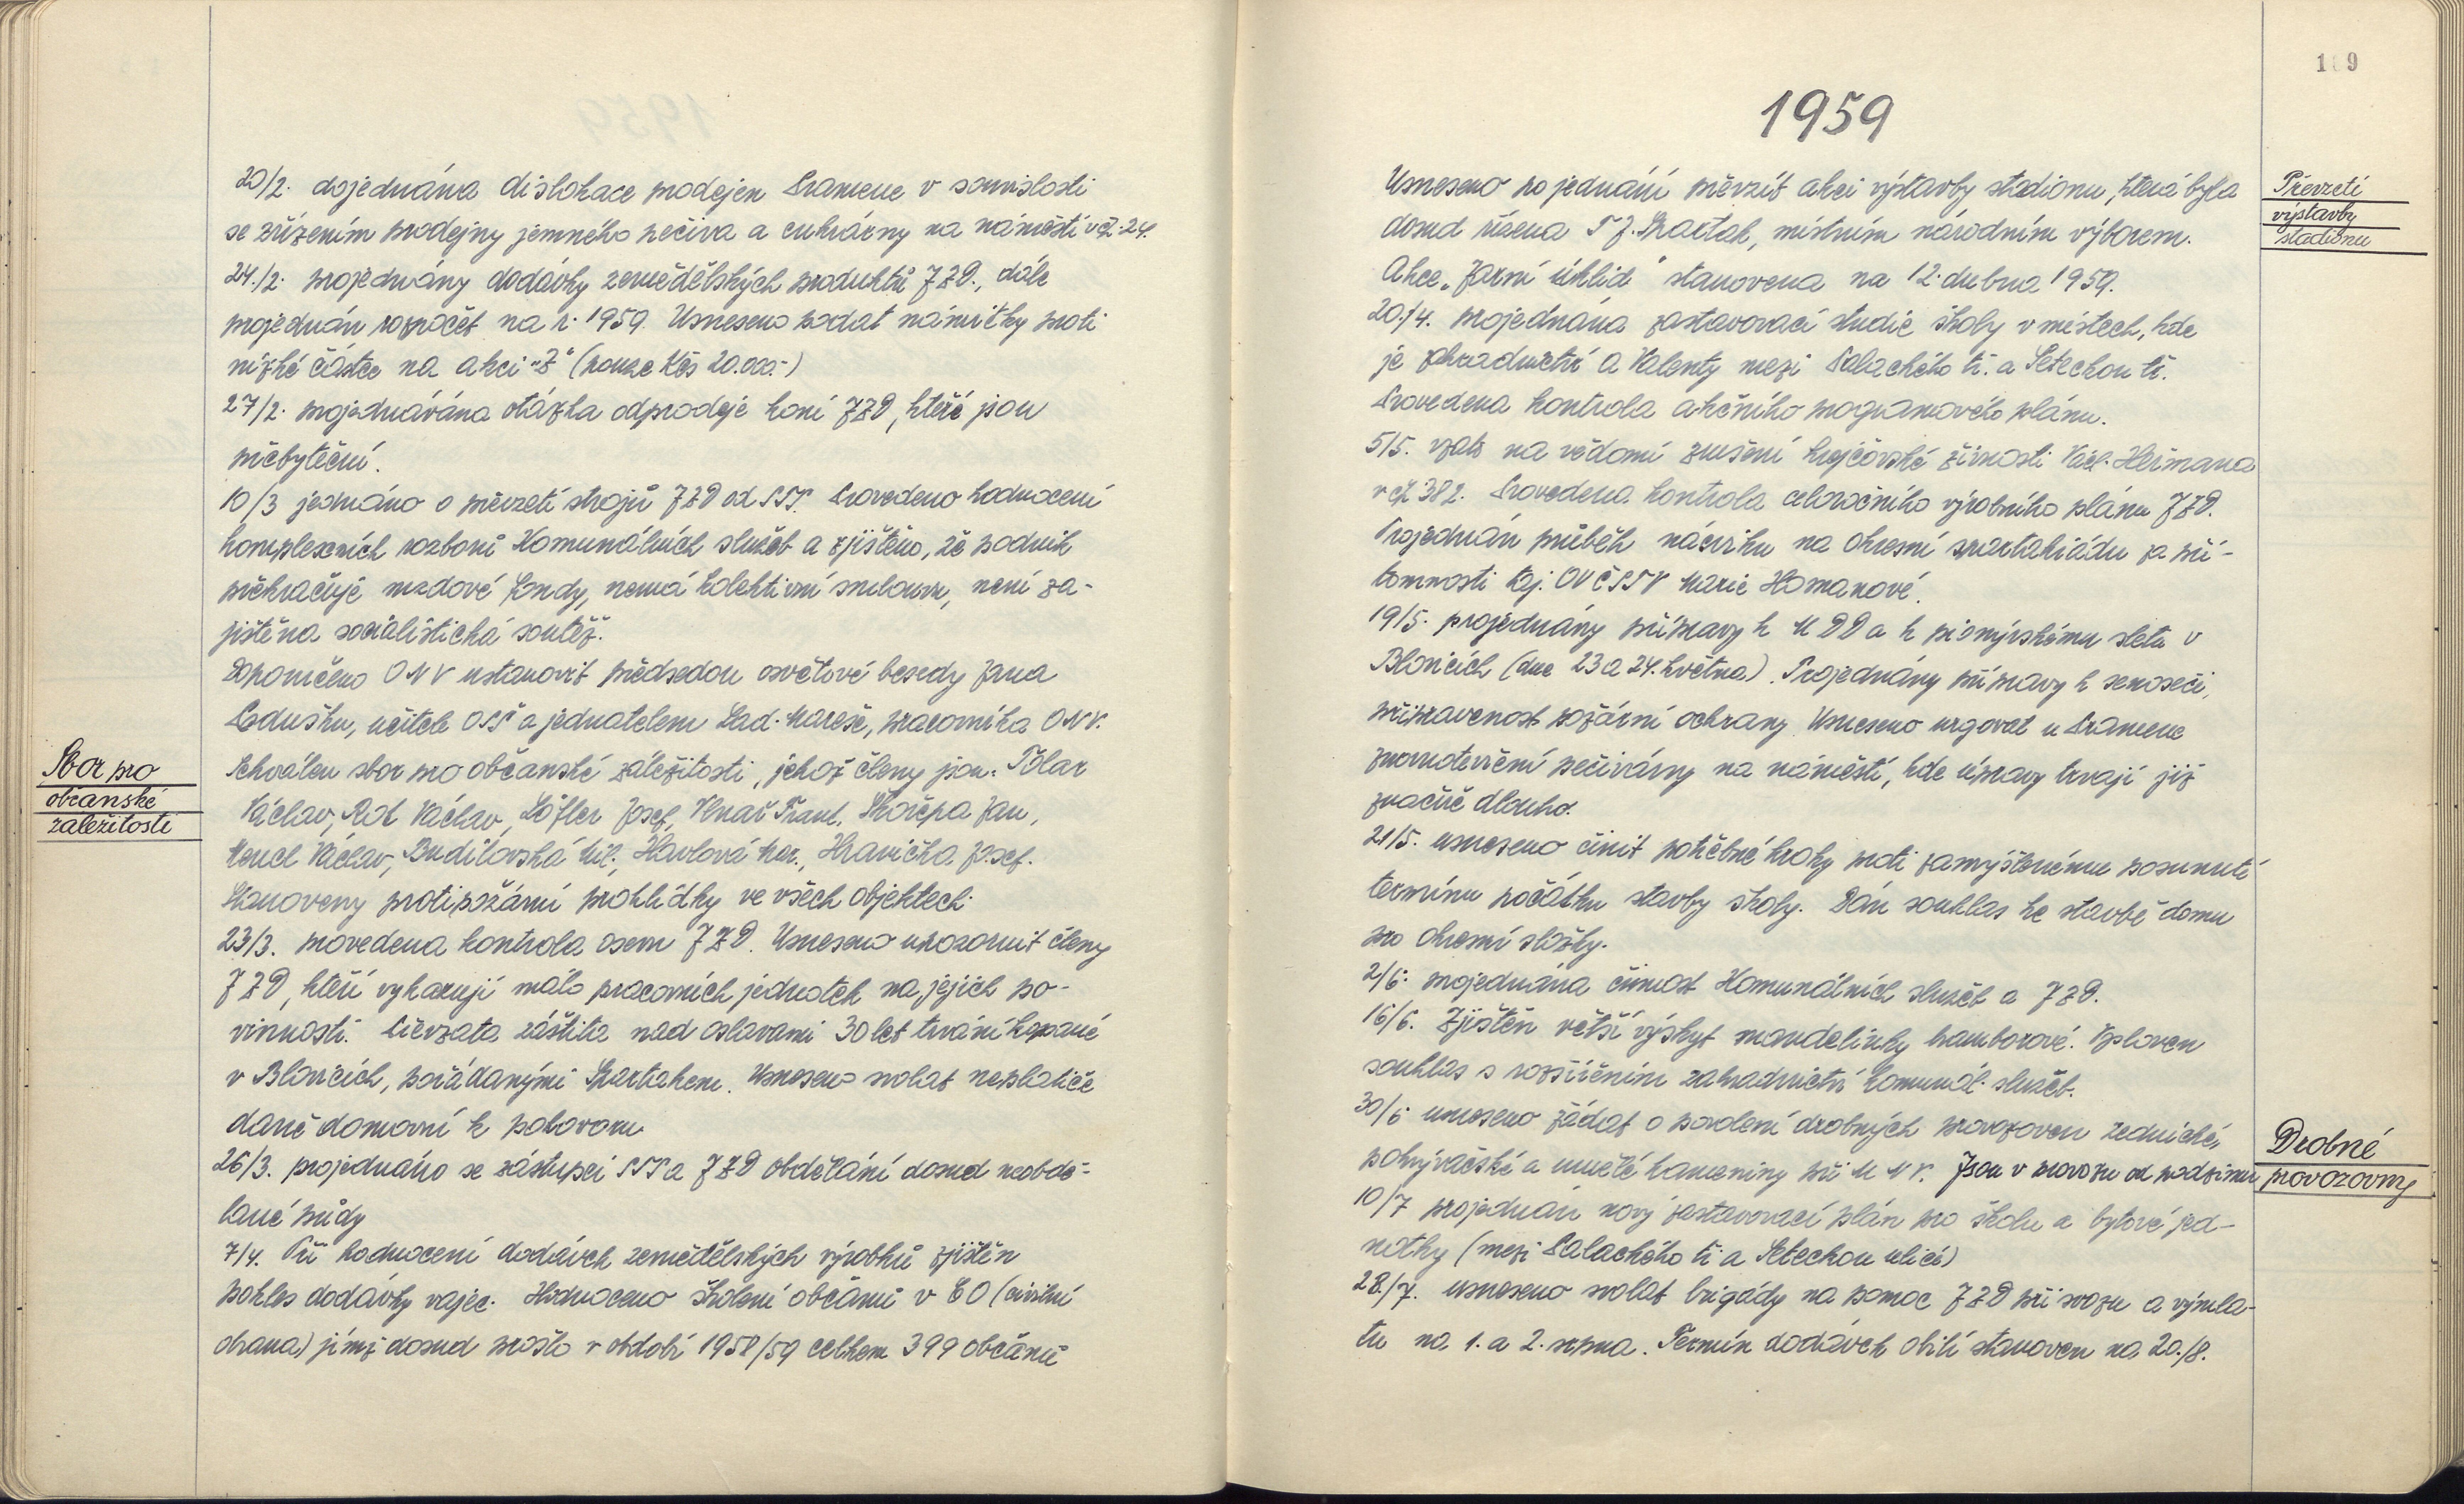 20/2. dojednána dislokace prodejen Pramene v souvislosti
se zřízením prodejny jemného pečiva a cukrárny na náměstí v čp. 24.
24./2. projednány dodávky zemědělských produktů JZD., dále
projednán rozpočet na r. 1959. Usneseno podat námitky proti
nízké částce na akci "Z" (pouze Kčs 20.000.-)
27/2. projednávána otázka odprodeje koní JZD, kteří jsou
přebyteční.
10/3 jednáno o převzetí strojů JZD od STS. Provedeno hodnocení
komplexních rozborů Komunálních služeb a zjištěno, že podnik
překračuje mzdové fondy, nemá kolektivní smlouvu, není za-
jištěna socialistická soutěž.
Doporučeno ONV ustanovit předsedou osvětové besedy Jana
učitele OSŠ a jednatelem Lad. Mareše, pracovníka ONV.
Schválen sbor pro občanské záležitosti, jehož členy jsou: Pólar
Václav, Rot Václav, Löffler Josef, Frant. Skořepa Jan,
Mencl Václav, Budilovská Mil., Havlová Mar., Hranička Josef.
Stanoveny protipožární prohlídky ve všech objektech.
23/3. provedena kontrola osevu JZD. Usneseno upozornit členy
JZD, kteří vykazují málo pracovních jednotek na jejich po-
vinnosti. Převzata záštita nad oslavami 30 let trvání kopané
v Blovicích, pořádanými Spartakem. Usneseno svolat neplatiče
daně domovní k pohovoru
26/3. projednáno se zástupci STS a JZD obdělání dosud neobdě-
lané půdy
7/4. Při hodnocení dodávek zemědělských výrobků zjištěn
pokles dodávky vajec. Hodnoceno školení občanů v CO (civilní
obrana) jímž dosud prošlo v období 1958/59 celkem 399 občanů
Sbor pro
občanské
záležitosti
1959
Usneseno po jednání převzít akci výstavby stadionu, která byla
dosud řízena T J. Spartak, místním národním výborem.
Akce "Jarní úklid" stanovena na 12. dubna 1959.
20./4. projednána zastavovací studie školy v místech, kde
je zahradnictví a Valenty mezi Palackého tř. a Setechou tř.
Provedena kontrola akčního programového plánu.
5/5. vzato na vědomí zrušení krejčovské živnosti Václ. Heřmana
v čp 382. Provedena kontrola celoročního výrobního plánu JZD.
Projednán průběh nácviku na okresní spartakiádu za pří-
tomnosti taj. OV ČSTV Marie Homanové.
19/5. projednány přípravy k M D D a k pionýrskému sletu v
Blovicích (dne 23 a 24. května). Projednány přípravy k senoseči,
připravenost požární ochrany. Usneseno urgovat u Pramene
znovuotevření pečivárny na náměstí, kde úpravy trvají již
značně dlouho.
21/5. usneseno činit potřebné kroky proti zamýšlenému posunutí
termínu počátku stavby školy. Dán souhlas ke stavbě domu
pro okresní složky.
2/6. projednána činnost Komunálních služeb a JZD.
16/6. Zjištěn větší výskyt mandelinky bramborové. Vysloven
souhlas s rozšířením zahradnictví komunál. služeb.
30/6 usneseno žádat o povolení drobných provozoven zednické,
pokrývačské a umělé kameniny při M N V. Jsou v provozu od podzimu
10/7 projednán nový zastavovací plán pro školu a bytové jed-
notky (mezi Palackého tř. a Setechou ulicí)
28./7. usneseno svolat brigády na pomoc JZD při svozu a výmla-
tu na 1. a 2. srpna. Termín dodávek obilí stanoven na 20./8.
Převzetí
výstavby
stadionu
Drobné
provozovny